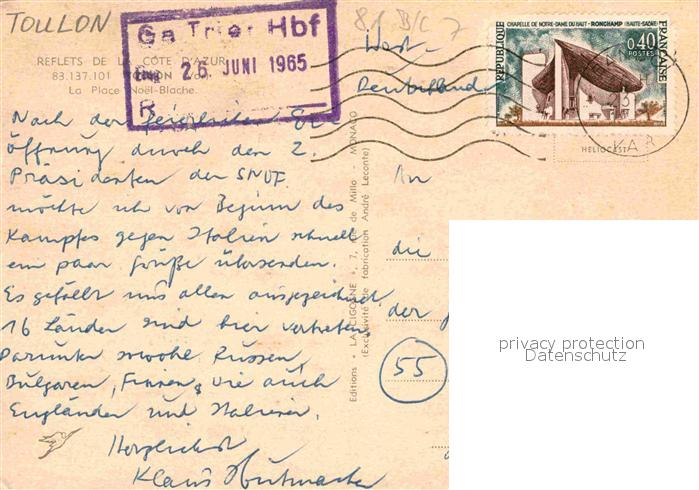 TOULON
Ga Trier Hbf
26. JUNI 1965
R
81 B/C 7
CHAPELLE DE NOTRE-DAME DU HAUT - RONCHAMP (HAUTE-SAÔNE)
RÉPUBLIQUE
FRANÇAISE
0,40
POSTES
HELIOCISTE
VAR
REFLETS DE LA CÔTE D'AZUR
83.137.101 TOULON (Var)
La Place Noël-Blache.
West-
Deutschland
Nach der feierlichen Er
öffnung durch den 2.
Präsidenten der SNCF
möchte ich vor Beginn des
Kampfes gegen Italien schnell
ein paar Grüße übersenden.
Es gefällt uns allen ausgezeichnet.
16 Länder sind hier vertreten,
Darunter sowohl Russen,
Bulgaren, Finnen, wie auch
Engländer und Italiener.
Herzlichst
Klaus
Editions "LA CIGOGNE", 7, rue de Millo - MONACO
(Exclusivité de fabrication André Leconte)
An
die
der
55
privacy protection
Datenschutz